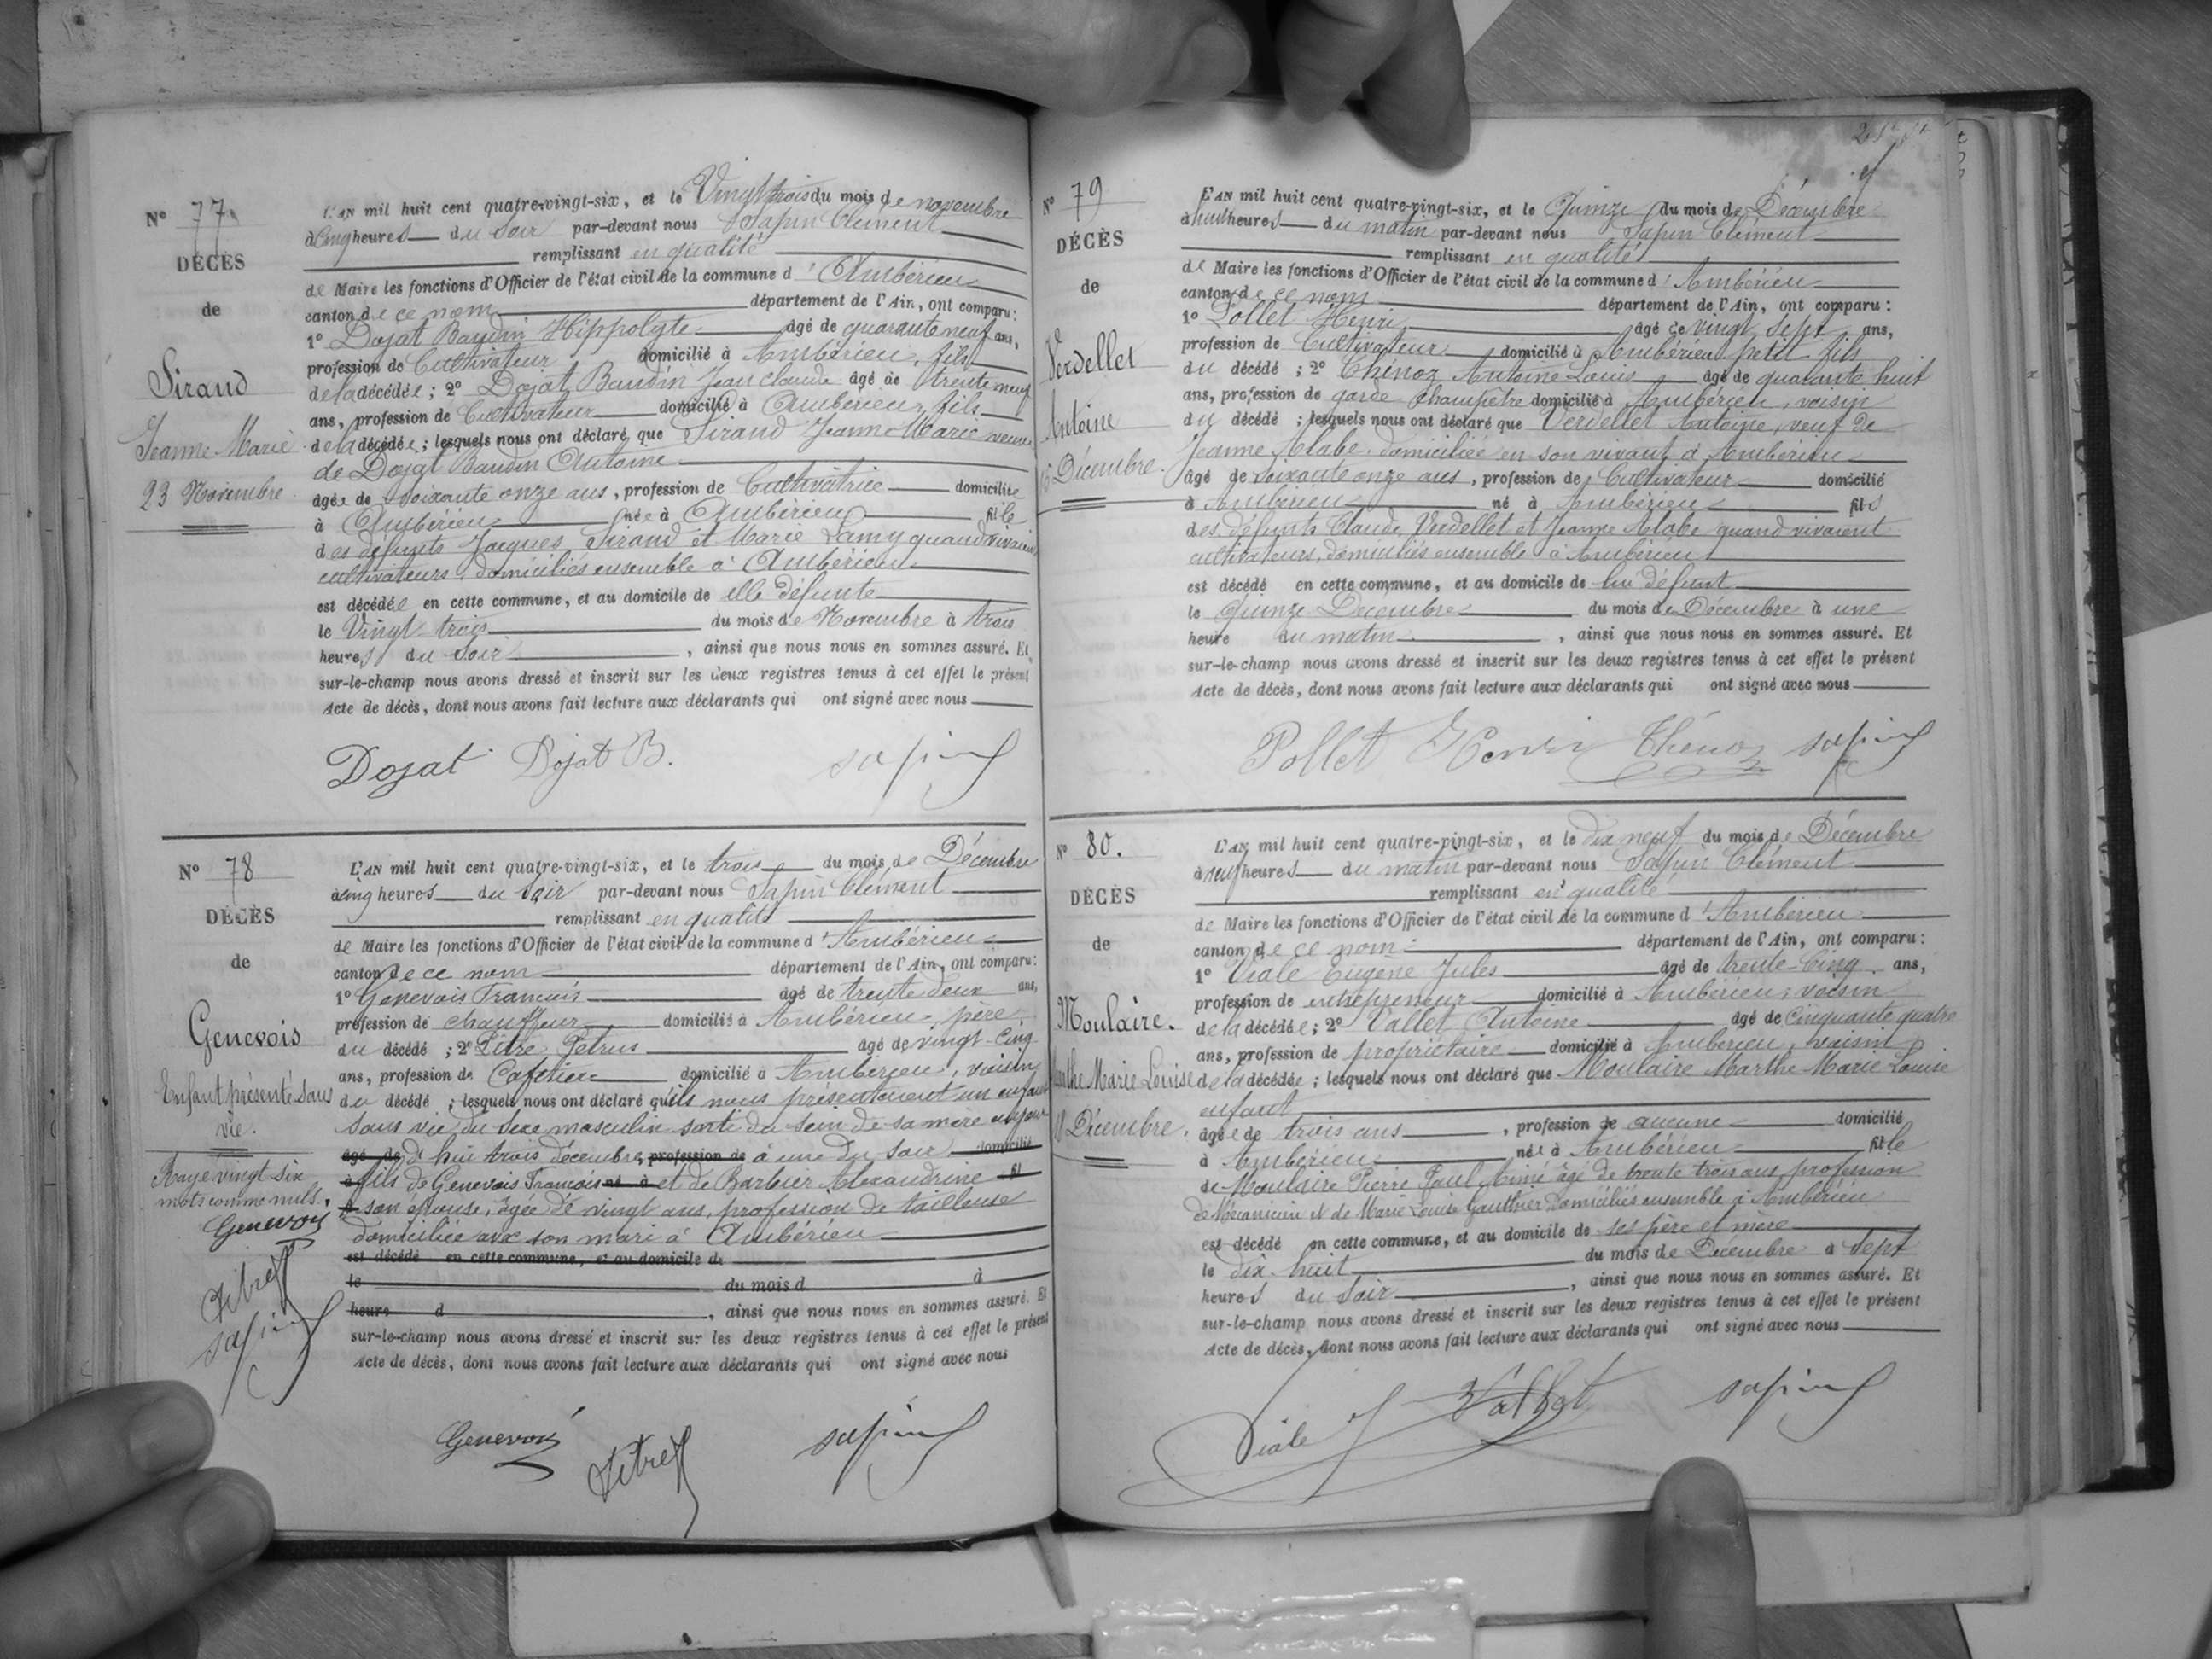 Nº 77.
DÉCÈS
de
Sirand
Jeanne Marie
23 Novembre
L'AN mil huit cent quatre-vingt-six, et le Vingt trois du mois de novembre
à cinq heures du soir par-devant nous Sapin Clément
remplissant en qualité
de Maire les fonctions d'Officier de l'état civil de la commune d'Ambérieu
canton de ce nom département de l'Ain, ont comparu:
1º Dojat Baudin Hippolyte âgé de quarante neuf ans,
profession de Cultivateur domicilié à Ambérieu, fils
de la décédée; 2º Dojat Baudin Jean Claude âgé de trente neuf
ans, profession de Cultivateur domicilié à Ambérieu, fils
de la décédée; lesquels nous ont déclaré que Sirand Jeanne Marie veuve
de Dojat Baudin Antoine
âgée de soixante onze ans, profession de Cultivatrice domiciliée
à Ambérieu née à Ambérieu fille
des défunts Jacques Sirand et Marie Lamy quand vivaient
cultivateurs, domiciliés ensemble à Ambérieu
est décédée en cette commune, et au domicile de elle défunte
le Vingt trois du mois de Novembre à trois
heures du soir, ainsi que nous nous en sommes assuré. Et
sur-le-champ nous avons dressé et inscrit sur les deux registres tenus à cet effet le présent
Acte de décès, dont nous avons fait lecture aux déclarants qui ont signé avec nous
Dojat Dojat B. Sapin
Nº 78
DÉCÈS
de
Genevois
Enfant présenté sans
vie.
Rayé vingt six
mots comme nuls.
Genevois
Titre
Sapin
L'AN mil huit cent quatre-vingt-six, et le trois du mois de Décembre
à cinq heures du soir par-devant nous Sapin Clément
remplissant en qualité
de Maire les fonctions d'Officier de l'état civil de la commune d'Ambérieu
canton de ce nom département de l'Ain, ont comparu:
1º Genevois François âgé de trente deux ans,
profession de chauffeur domicilié à Ambérieu, père
du décédé; 2º Titre Petrus âgé de vingt-cinq
ans, profession de Cafetier domicilié à Ambérieu, voisin
du décédé; lesquels nous ont déclaré qu'ils nous présentaient un enfant
sans vie du sexe masculin sorti du sein de sa mère aujour
âgé de d'hui trois décembre, profession de à une du soir domicilié
à fils de Genevois François né à et de Barbier Alexandrine fil
d son épouse, âgée de vingt ans, profession de tailleuse
domiciliée avec son mari à Ambérieu
est décédé en cette commune, et au domicile de
le du mois d à
heure d, ainsi que nous nous en sommes assuré. Et
sur-le-champ nous avons dressé et inscrit sur les deux registres tenus à cet effet le présent
Acte de décès, dont nous avons fait lecture aux déclarants qui ont signé avec nous
Genevois Titre Sapin
Nº 79
DÉCÈS
de
Verdellet
Antoine
15 Décembre.
L'AN mil huit cent quatre-vingt-six, et le Quinze du mois de Décembre
à huit heures du matin par-devant nous Sapin Clément
remplissant en qualité
de Maire les fonctions d'Officier de l'état civil de la commune d'Ambérieu
canton de ce nom département de l'Ain, ont comparu:
1º Pollet Henri âgé de vingt sept ans,
profession de Cultivateur domicilié à Ambérieu petit fils
du décédé; 2º Thénoz Antoine Louis âgé de quarante huit
ans, profession de garde champêtre domicilié à Ambérieu, voisin
du décédé; lesquels nous ont déclaré que Verdellet Antoine, veuf de
Jeanne Mabe domiciliée en son vivant à Ambérieu
âgé de soixante onze ans, profession de Cultivateur domicilié
à Ambérieu né à Ambérieu fils
des défunts Claude Verdellet et Jeanne Mabe quand vivaient
cultivateurs, domiciliés ensemble à Ambérieu
est décédé en cette commune, et au domicile de lui défunt
le Quinze Décembre du mois de Décembre à une
heure du matin, ainsi que nous nous en sommes assuré. Et
sur-le-champ nous avons dressé et inscrit sur les deux registres tenus à cet effet le présent
Acte de décès, dont nous avons fait lecture aux déclarants qui ont signé avec nous
Pollet Henri Thénoz Sapin
Nº 80.
DÉCÈS
de
Moulaire.
Marthe Marie Louise
18 Décembre.
L'AN mil huit cent quatre-vingt-six, et le dix neuf du mois de Décembre
à neuf heures du matin par-devant nous Sapin Clément
remplissant en qualité
de Maire les fonctions d'Officier de l'état civil de la commune d'Ambérieu
canton de ce nom département de l'Ain, ont comparu:
1º Viale Eugène Jules âgé de trente-cinq ans,
profession de entrepreneur domicilié à Ambérieu, voisin
de la décédée; 2º Vallet Antoine âgé de cinquante quatre
ans, profession de propriétaire domicilié à Ambérieu, voisin
de la décédée; lesquels nous ont déclaré que Moulaire Marthe Marie Louise
enfant
âgée de trois ans, profession de aucune domicilié
à Ambérieu née à Ambérieu fille
de Moulaire Pierre Paul Aimé âgé de trente trois ans profession
de Mécanicien et de Marie Louise Gauthier domiciliés ensemble à Ambérieu
est décédé en cette commune, et au domicile de ses père et mère
le dix-huit du mois de Décembre à sept
heures du soir, ainsi que nous nous en sommes assuré. Et
sur-le-champ nous avons dressé et inscrit sur les deux registres tenus à cet effet le présent
Acte de décès, dont nous avons fait lecture aux déclarants qui ont signé avec nous
Viale J Vallet Sapin